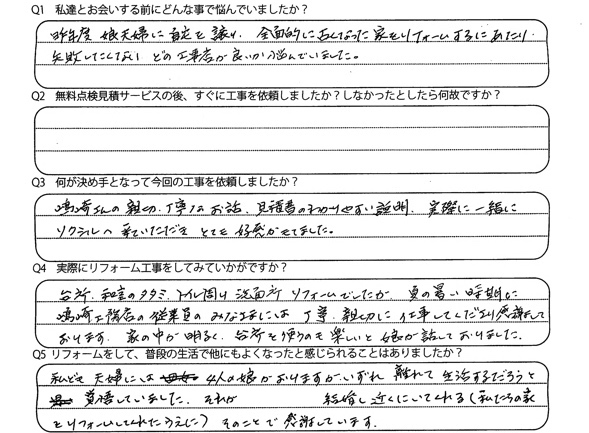 Q1 私達とお会いする前にどんな事で悩んでいましたか？
昨年度 娘夫婦に自宅を譲り、全面的に古くなった家をリフォームするにあたり
失敗したくない どの工事店が良いか悩んでいました。
Q2 無料点検見積サービスの後、すぐに工事を依頼しましたか？しなかったとしたら何故ですか？
Q3 何が決め手となって今回の工事を依頼しましたか？
嶋崎さんの親切、丁寧なお話、見積書のわかりやすい説明、実際に一緒に
リクシルへ来ていただき とても 好感がもてました。
Q4 実際にリフォーム工事をしてみていかがですか？
台所、和室のタタミ、トイレ周り 洗面所 リフォームでしたが、夏の暑い時期に
嶋崎工務店の従業員のみなさまには 丁寧、親切に 仕事してくださり感謝して
おります。家の中が明るく、台所を使うのも楽しいと娘が話しておりました。
Q5 リフォームをして、普段の生活で他にもよくなったと感じられることはありましたか？
私ども 夫婦には 4人の娘がおりますがいずれ 離れて生活するだろうと
覚悟していました。それが 結婚し近くにいてくれる（私たちの家
をリフォームしてくれたうえに）そのことで感謝しています。